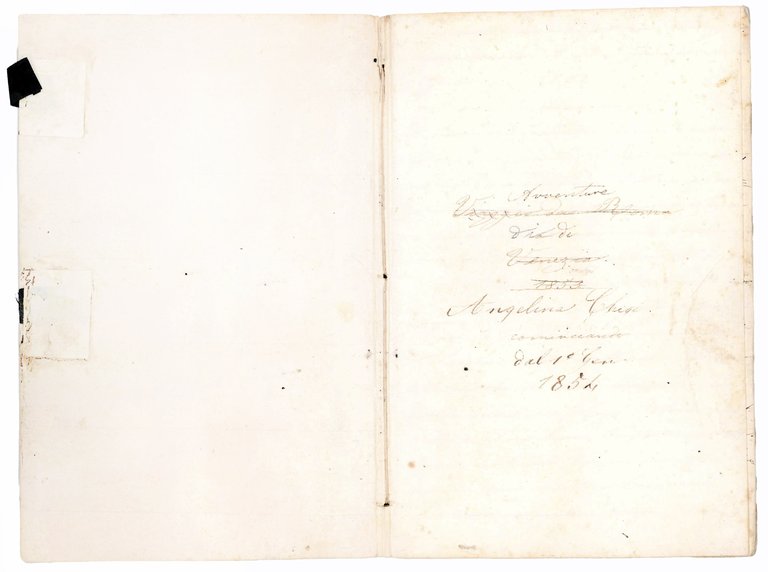 Avventure
Viaggio da Roma
di
Venezia
1853
Angelina
cominciando
dal 1º Gen.
1854